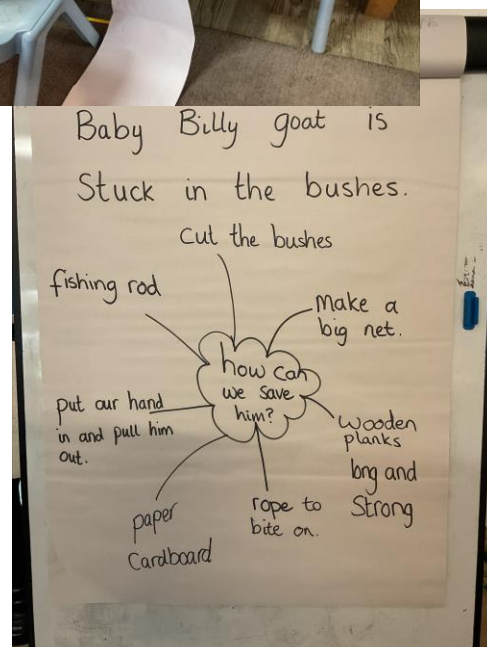 Baby Billy goat is
Stuck in the bushes.
cut the bushes
fishing rod
Make a
big net.
how can
we save
him?
put our hand
in and pull him
out.
wooden
planks
long and
Strong
rope to
bite on.
paper
Cardboard